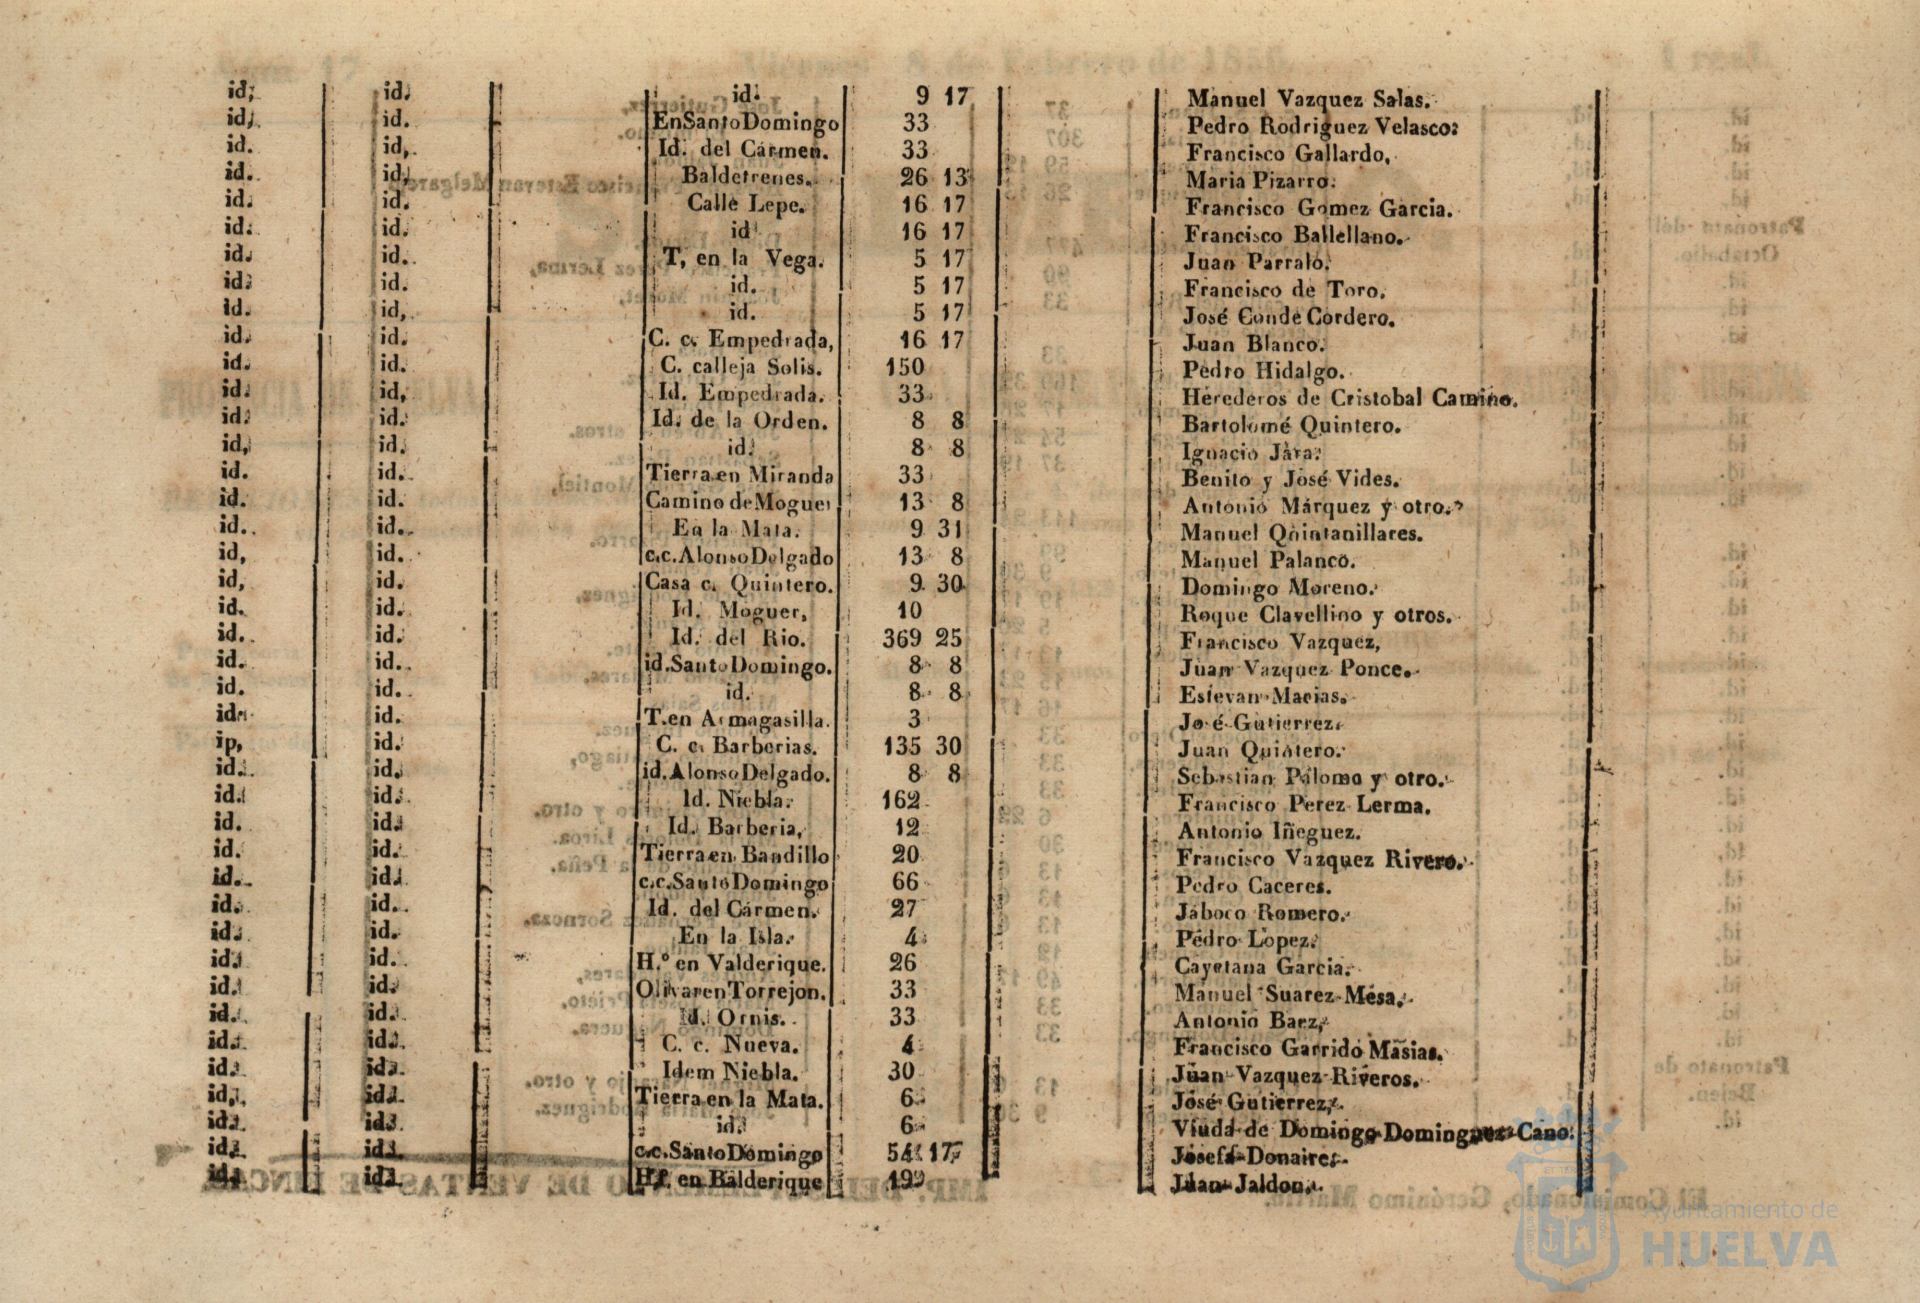 id; id. id. 9 17 Manuel Vazquez Salas.
id; id. EnSantoDomingo 33 Pedro Rodriguez Velasco:
id. id, Id. del Cármen. 33 Francisco Gallardo,
id. id, Baldetrenes. 26 13 Maria Pizarro.
id. id. Calle Lepe. 16 17 Francisco Gomez Garcia.
id. id. id 16 17 Francisco Ballellano.
id. id. T, en la Vega. 5 17 Juan Parralo.
id. id. id. 5 17 Francisco de Toro,
id. id, id. 5 17 José Conde Cordero.
id. id. C. c. Empedrada, 16 17 Juan Blanco.
id. id. C. calleja Solis. 150 Pedro Hidalgo.
id. id, Id. Empedrada. 33 Herederos de Cristobal Camino.
id. id. Id. de la Orden. 8 8 Bartolomé Quintero.
id, id. id. 8 8 Ignacio Jara.
id. id. Tierra en Miranda 33 Benito y José Vides.
id. id. Camino de Moguer 13 8 Antonio Márquez y otro.
id. id. En la Mata. 9 31 Manuel Quintanillares.
id, id. c.c. Alonso Delgado 13 8 Manuel Palanco.
id, id. Casa c. Quintero. 9 30 Domingo Moreno.
id. id. Id. Moguer, 10 Roque Clavellino y otros.
id. id. Id. del Rio. 369 25 Francisco Vazquez,
id. id. id. Santo Domingo. 8 8 Juan Vazquez Ponce.
id. id. id. 8 8 Estevan Macias.
id. id. T. en Armagasilla. 3 José Gutierrez.
ip, id. C. c. Barberias. 135 30 Juan Quintero.
id. id. id. Alonso Delgado. 8 8 Sebastian Palomo y otro.
id. id. Id. Niebla. 162 Francisco Perez Lerma.
id. id. Id. Barberia, 12 Antonio Iñeguez.
id. id. Tierra en Bandillo 20 Francisco Vazquez Rivero.
id. id. c.c. Santo Domingo 66 Pedro Caceres.
id. id. Id. del Cármen. 27 Jaboco Romero.
id. id. En la Isla. 4 Pedro Lopez.
id. id. H.º en Valderique. 26 Cayetana Garcia.
id. id. Olivar en Torrejon. 33 Manuel Suarez Mesa.
id. id. Id. Ornis. 33 Antonio Baez,
id. id. C. c. Nueva. 4 Francisco Garrido Masias.
id. id. Idem Niebla. 30 Juan Vazquez Riveros.
id. id. Tierra en la Mata. 6 José Gutierrez,
id. id. id. 6 Viuda de Domingo Dominguez Cano.
id. id. c.c. Santo Domingo 54 17 Josefa Donaire,
id. id. en Balderique Juan Jaldon.
Ayuntamiento de
HUELVA